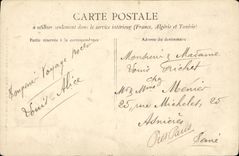 CARTE POSTALE
à utiliser seulement dans le service intérieur (France, Algérie et Tunisie)
Partie réservée à la correspondance
Adresse du destinataire
Voyage
Louis Alice
Monsieur & Madame
Louis Trichet
chez
Mr & Mme Menier
25, rue Michelet, 25
Asnières
Près Paris
Seine